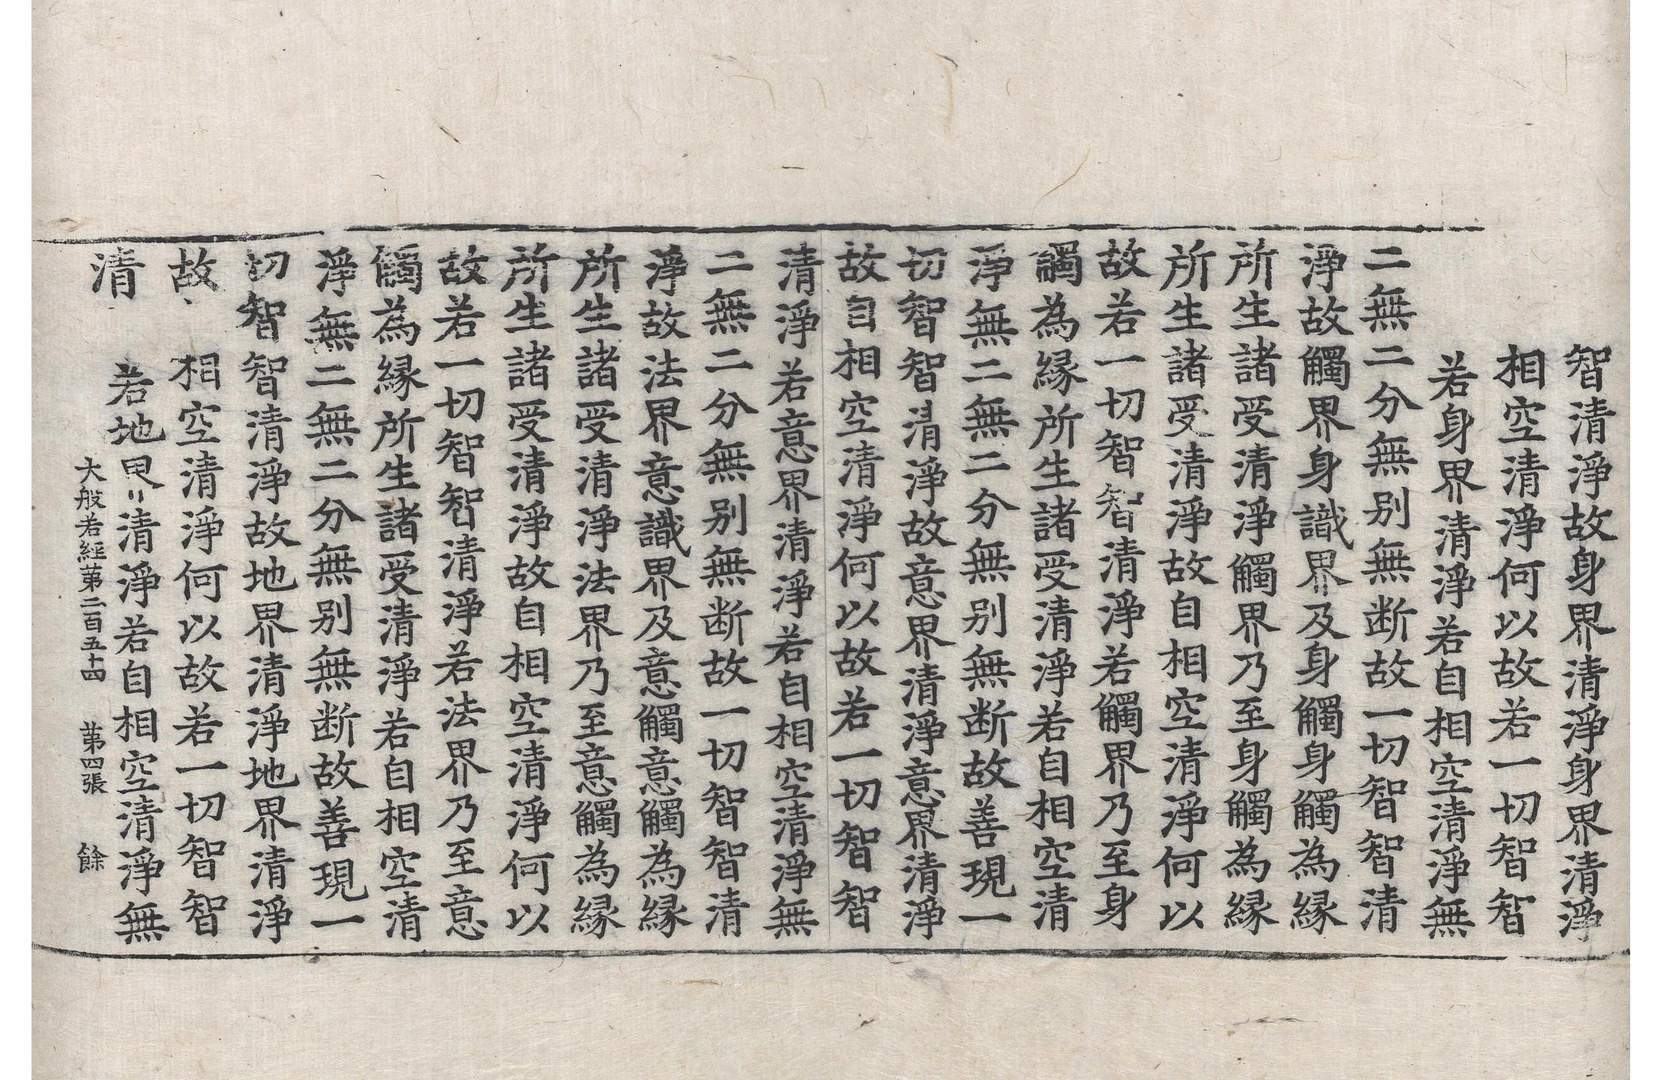 智清淨故身界清淨身界清淨
相空清淨何以故若一切智智
若身界清淨若自相空清淨無
二無二分無别無断故一切智智清
淨故觸界身識界及身觸身觸為縁
所生諸受清淨觸界乃至身觸為縁
所生諸受清淨故自相空清淨何以
故若一切智智清淨若觸界乃至身
觸為縁所生諸受清淨若自相空清
淨無二無二分無别無断故善現一
切智智清淨故意界清淨意界清淨
故自相空清淨何以故若一切智智
清淨若意界清淨若自相空清淨無
二無二分無别無断故一切智智清
淨故法界意識界及意觸意觸為縁
所生諸受清淨法界乃至意觸為縁
所生諸受清淨故自相空清淨何以
故若一切智智清淨若法界乃至意
觸為縁所生諸受清淨若自相空清
淨無二無二分無别無断故善現一
切智智清淨故地界清淨地界清淨
故 相空清淨何以故若一切智智
清 若地界清淨若自相空清淨無
大般若經第二百五十四 第四張 餘